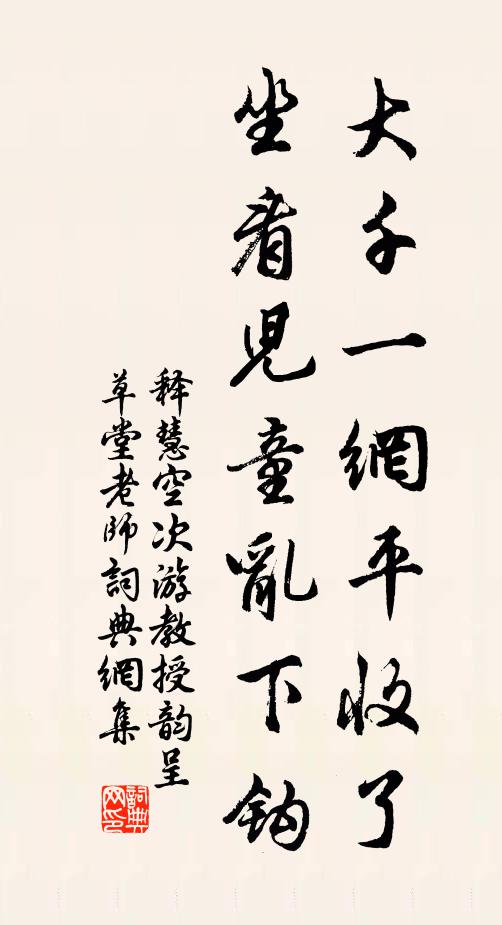 大千一網平收了
坐看兒童亂下鈎
释慧空次游教授韵呈
草堂老師詞典網集
詞典网印